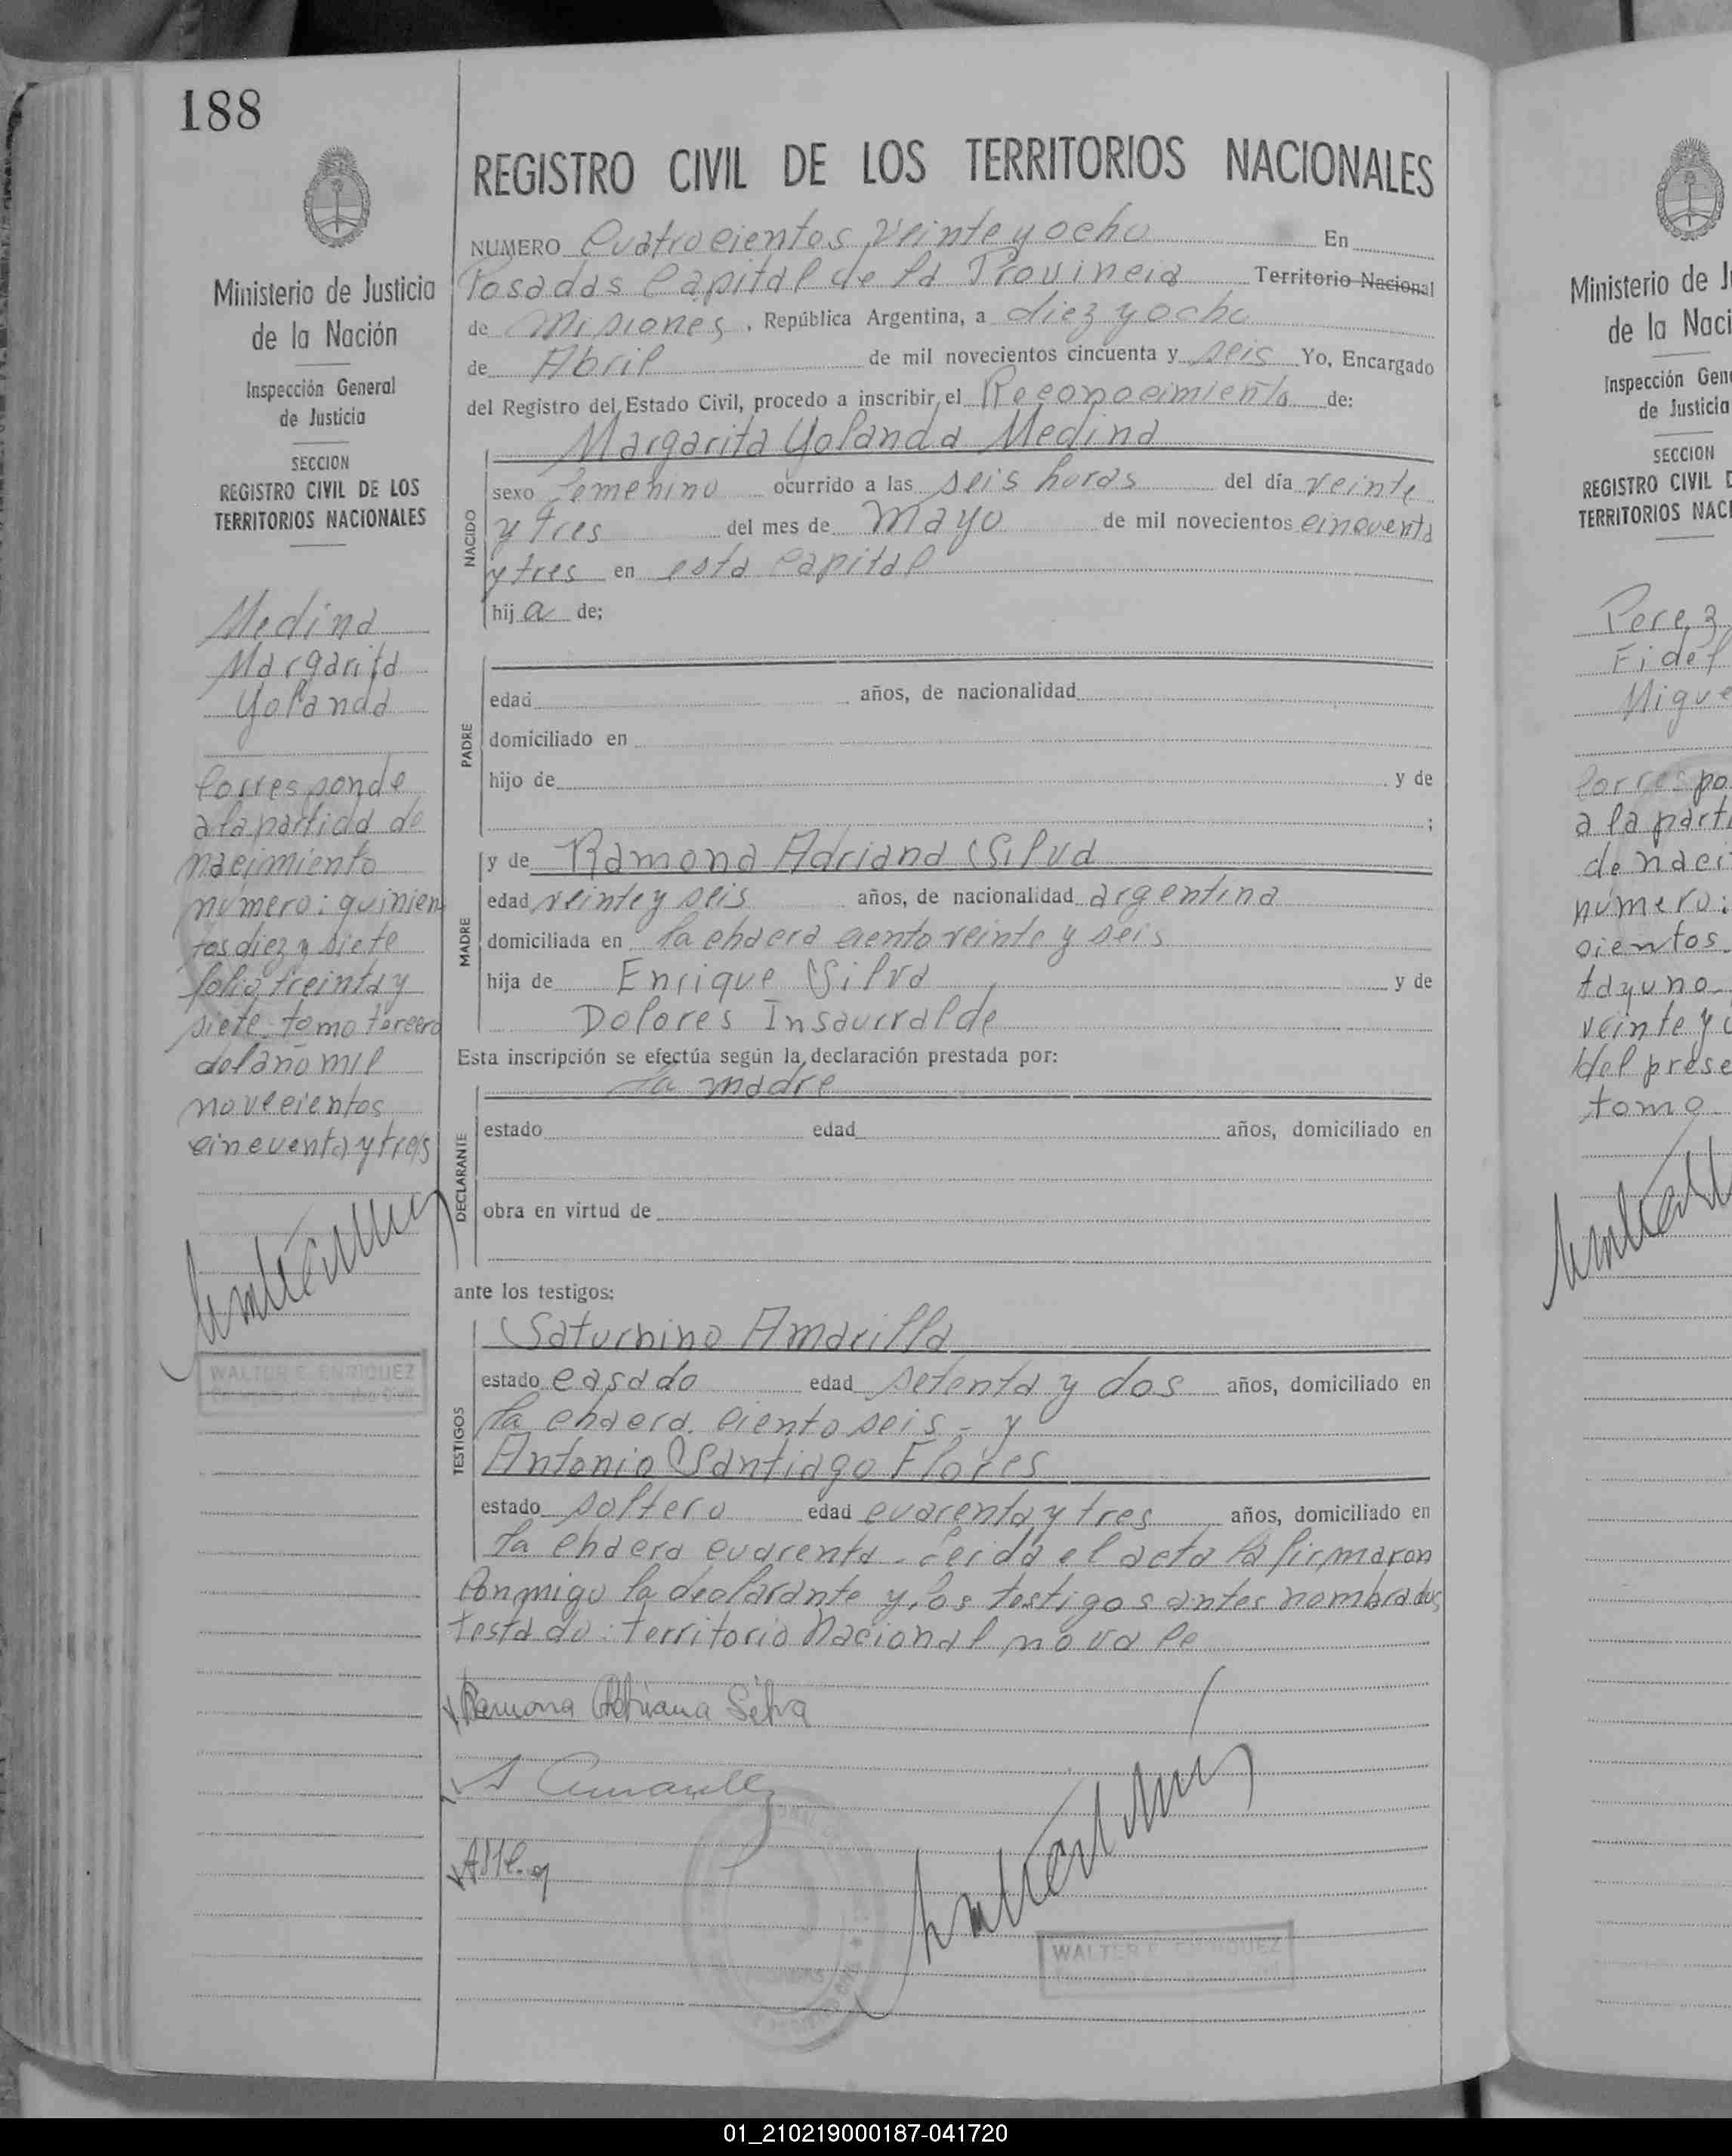 188
Ministerio de Justicia
de la Nación
Inspección General
de Justicia
SECCION
REGISTRO CIVIL DE LOS
TERRITORIOS NACIONALES
Medina
Margarita
Yolanda
Corresponde
a la partida de
nacimiento
número: quinien
tos diez y siete
folio treinta y
siete tomo tercero
del año mil
novecientos
cincuenta y tres
WALTER E. ENRIQUEZ
REGISTRO CIVIL DE LOS TERRITORIOS NACIONALES
NUMERO Cuatrocientos Veinte y ocho En
Posadas Capital de la Provincia Territorio Nacional
de Misiones, República Argentina, a diez y ocho
de Abril de mil novecientos cincuenta y seis Yo, Encargado
del Registro del Estado Civil, procedo a inscribir el Reconocimiento de:
Margarita Yolanda Medina
NACIDO
sexo femenino ocurrido a las seis horas del día veinte
y tres del mes de mayo de mil novecientos cincuenta
y tres en esta Capital
hij a de;
PADRE
edad años, de nacionalidad
domiciliado en
hijo de y de
;
MADRE
y de Ramona Adriana Silva
edad veinte y seis años, de nacionalidad argentina
domiciliada en la chacra ciento veinte y seis
hija de Enrique Silva y de
Dolores Insaurralde
Esta inscripción se efectúa según la declaración prestada por:
la madre
DECLARANTE
estado edad años, domiciliado en
obra en virtud de
ante los testigos:
TESTIGOS
Saturnino Amarilla
estado casado edad setenta y dos años, domiciliado en
la chacra ciento seis - y
Antonio Santiago Flores
estado soltero edad cuarenta y tres años, domiciliado en
la chacra cuarenta - Leida el acta la firmaron
Conmigo la declarante y los testigos antes nombrados
testado: territorio Nacional no vale
Ramona Adriana Silva
WALTER E. ENRIQUEZ
Ministerio de J
de la Naci
Inspección Gene
de Justicia
SECCION
REGISTRO CIVIL D
TERRITORIOS NACI
Perez
Fidel
Migue
Correspo
a la parti
de naci
número:
cientos
ta y uno
veinte y
del prese
tomo
01_210219000187-041720